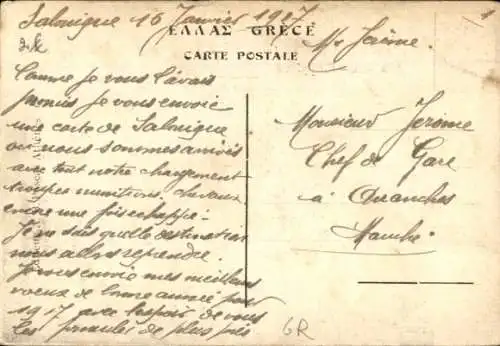 Salonique 16 Janvier 1917
Mr Jérôme
ΕΛΛΑΣ GRÈCE
CARTE POSTALE
Comme je vous l'avais
promis je vous envoie
une carte de Salonique
ou nous sommes arrivés
avec tout notre chargement
troupes munitions chevaux
encore une fois échappé.
Je ne sais quelle destination
nous allons reprendre.
Je vous envoie mes meilleurs
voeux de bonne année pour
1917 avec l'espoir de vous
les formuler de plus près
Monsieur Jerome
Chef de Gare
à Avranches
Manche
GR